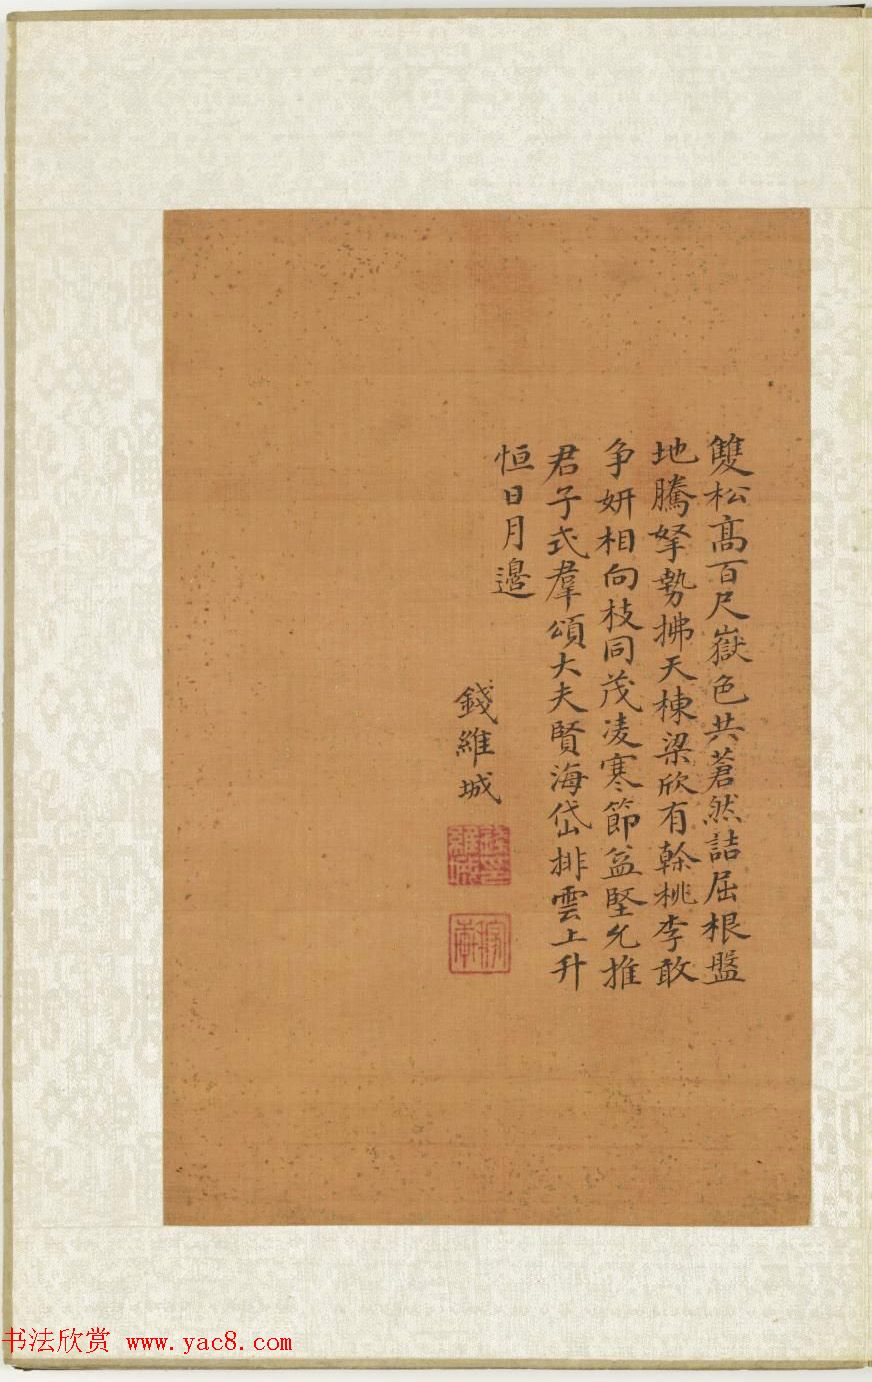 雙松高百尺嶽色共蒼然詰屈根盤
地騰拏勢拂天棟梁欣有榦桃李敢
爭妍相向枝同茂凌寒節益堅允推
君子式羣頌大夫賢海岱排雲上升
恒日月邊
錢維城
书法欣赏 www.yac8.com